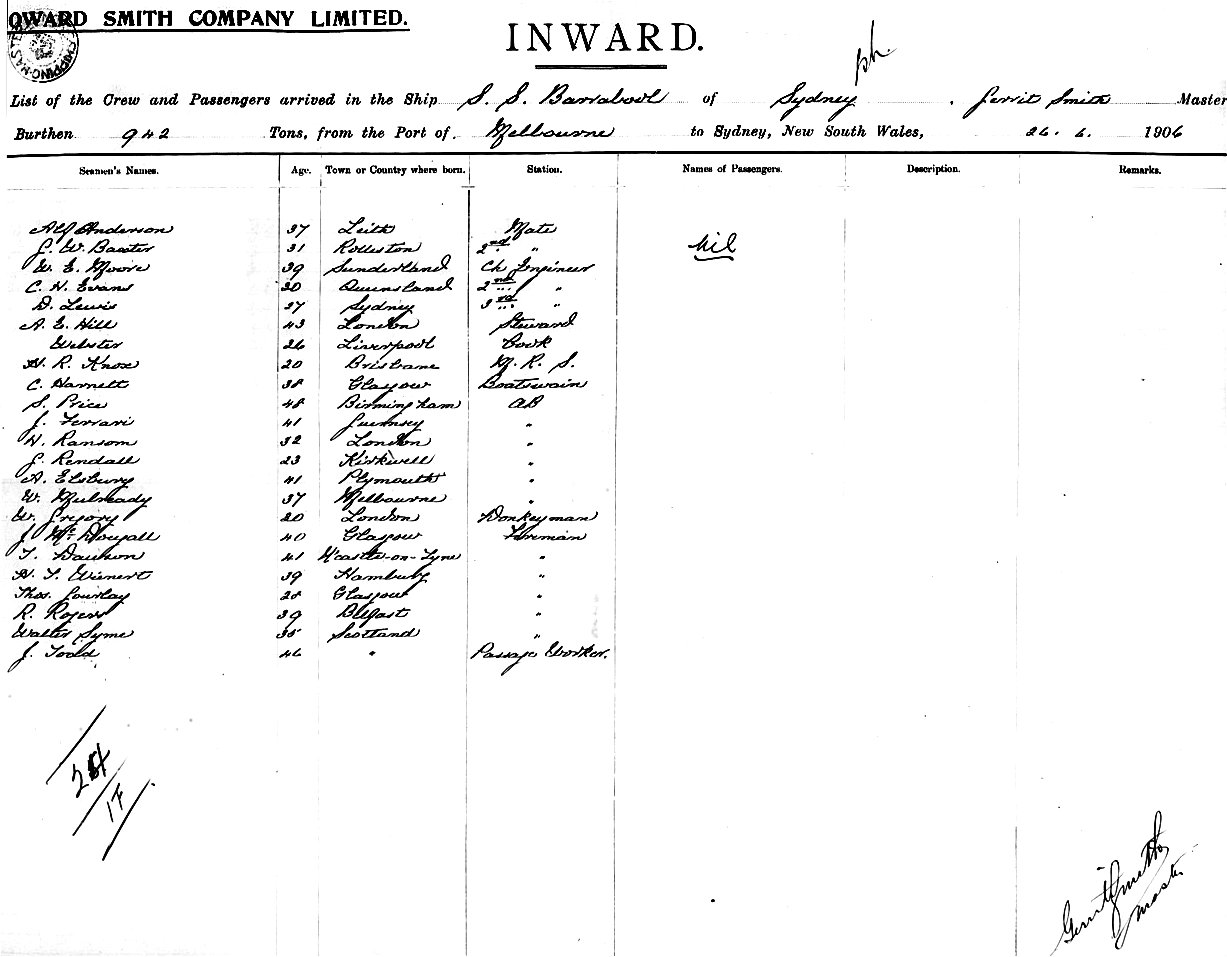 OWARD SMITH COMPANY LIMITED.
INWARD.
List of the Crew and Passengers arrived in the Ship S. S. Barrabool of Sydney, Gerrit Smith Master
Burthen 942 Tons, from the Port of Melbourne to Sydney, New South Wales, 26. 6. 1906
Seamen's Names. Age. Town or Country where born. Station. Names of Passengers. Description. Remarks.
Alf Anderson 37 Leith Mate
G. W. Baxter 31 Rolleston 2nd " Nil
W. E. Moore 39 Sunderland Ch Engineer
C. H. Evans 30 Queensland 2nd "
D. Lewis 27 Sydney 3rd "
A. E. Hill 43 London Steward
Webster 26 Liverpool Cook
H. R. Knox 20 Brisbane M. R. S.
C. Harnett 38 Glasgow Boatswain
S. Price 48 Birmingham AB
J. Ferrari 41 Guernsey "
H. Ransom 32 London "
G. Rendall 23 Kirkwell "
A. Elsbury 41 Plymouth "
W. Mulready 37 Melbourne "
W. Gregory 20 London Donkeyman
J McDougall 40 Glasgow Fireman
T. Dawson 41 N'castle-on-Tyne "
H. T. Wienert 39 Hamburg "
Thos. Gourlay 28 Glasgow "
R. Rogers 39 Belfast "
Walter Syme 35 Scotland "
J. Todd 46 " Passage Worker.
Gerrit Smith
Master